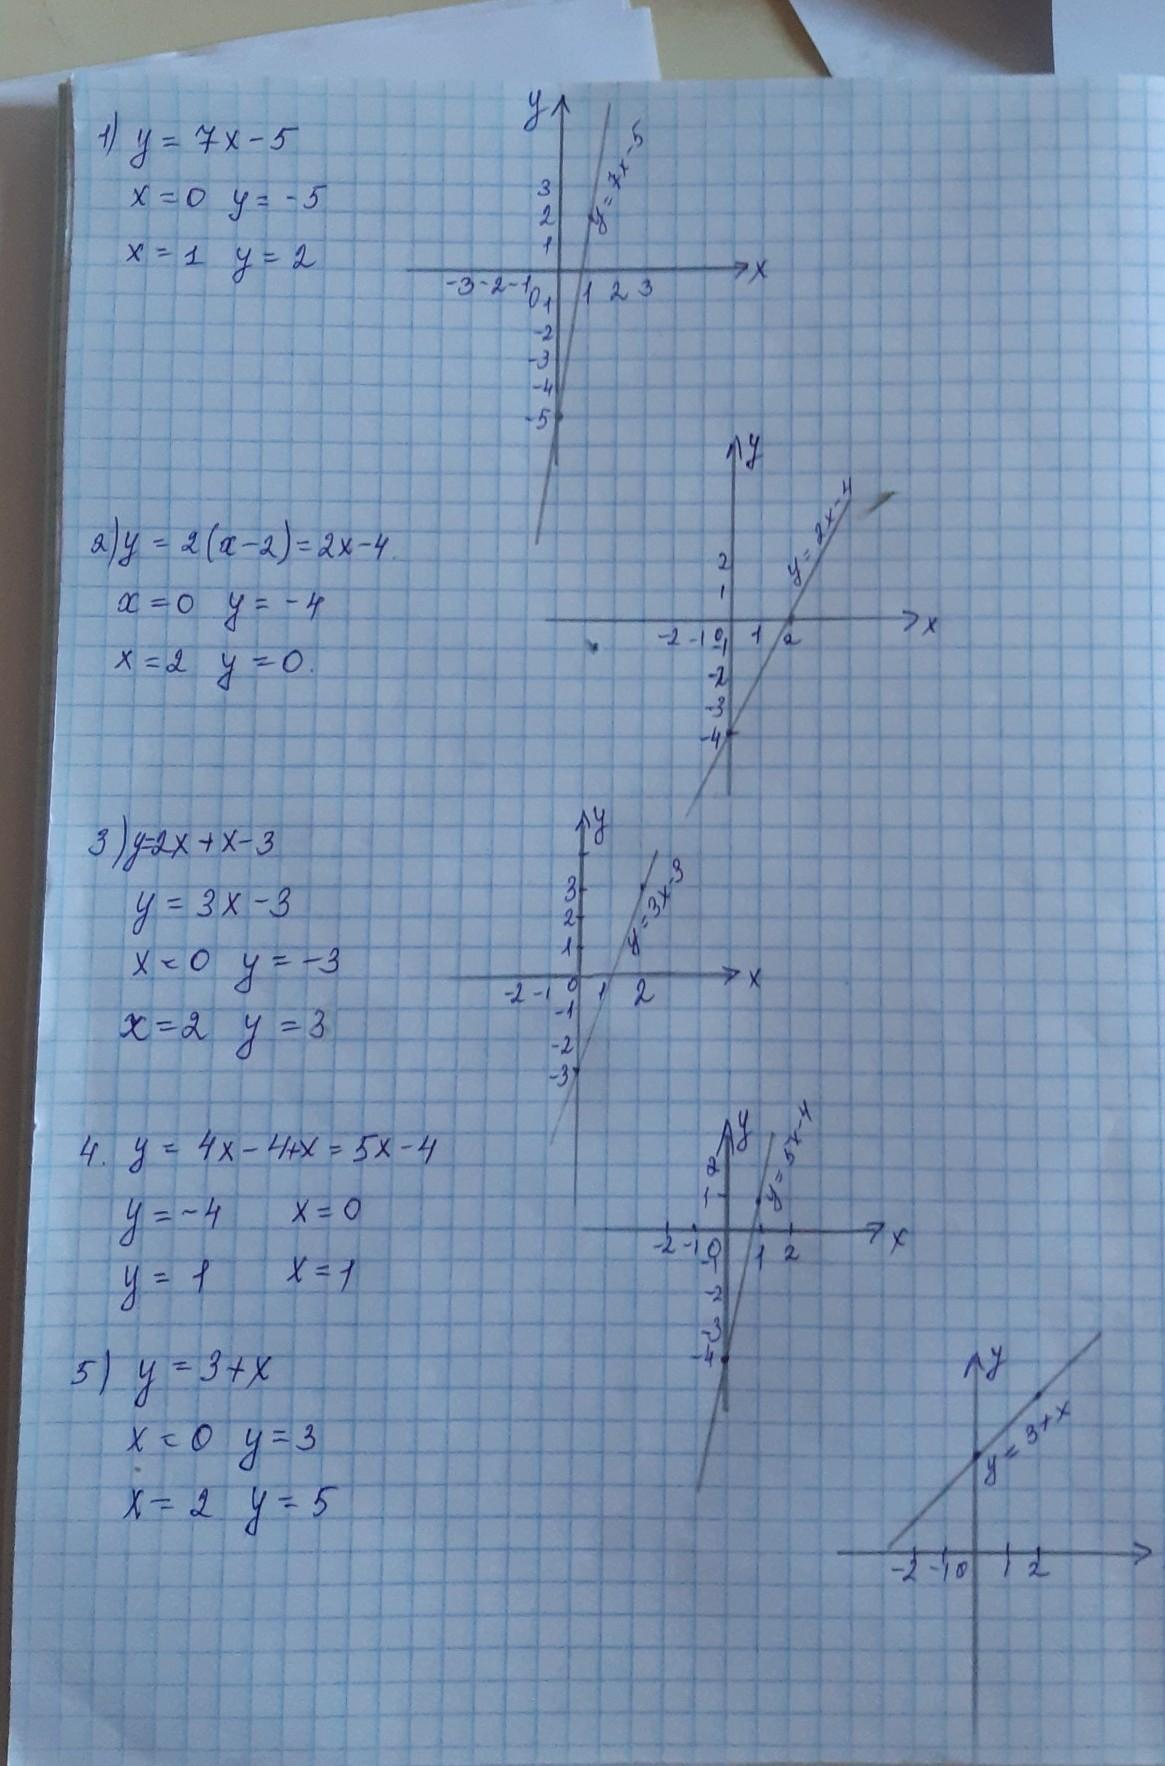 1) y = 7x - 5
x = 0 y = -5
x = 1 y = 2
y
3
2
1
-3 -2 -1 0 1 2 3 x
-1
-2
-3
-4
-5
y = 7x - 5
2) y = 2(x - 2) = 2x - 4.
x = 0 y = -4
x = 2 y = 0.
y
2
1
-2 -1 0 1 2 x
-1
-2
-3
-4
y = 2x - 4
3) y = 2x + x - 3
y = 3x - 3
x = 0 y = -3
x = 2 y = 3
y
3
2
1
-2 -1 0 1 2 x
-1
-2
-3
y = 3x - 3
4. y = 4x - 4 + x = 5x - 4
y = -4 x = 0
y = 1 x = 1
y
2
1
-2 -1 0 1 2 x
-1
-2
-3
-4
y = 5x - 4
5) y = 3 + x
x = 0 y = 3
x = 2 y = 5
y
y = 3 + x
-2 -1 0 1 2